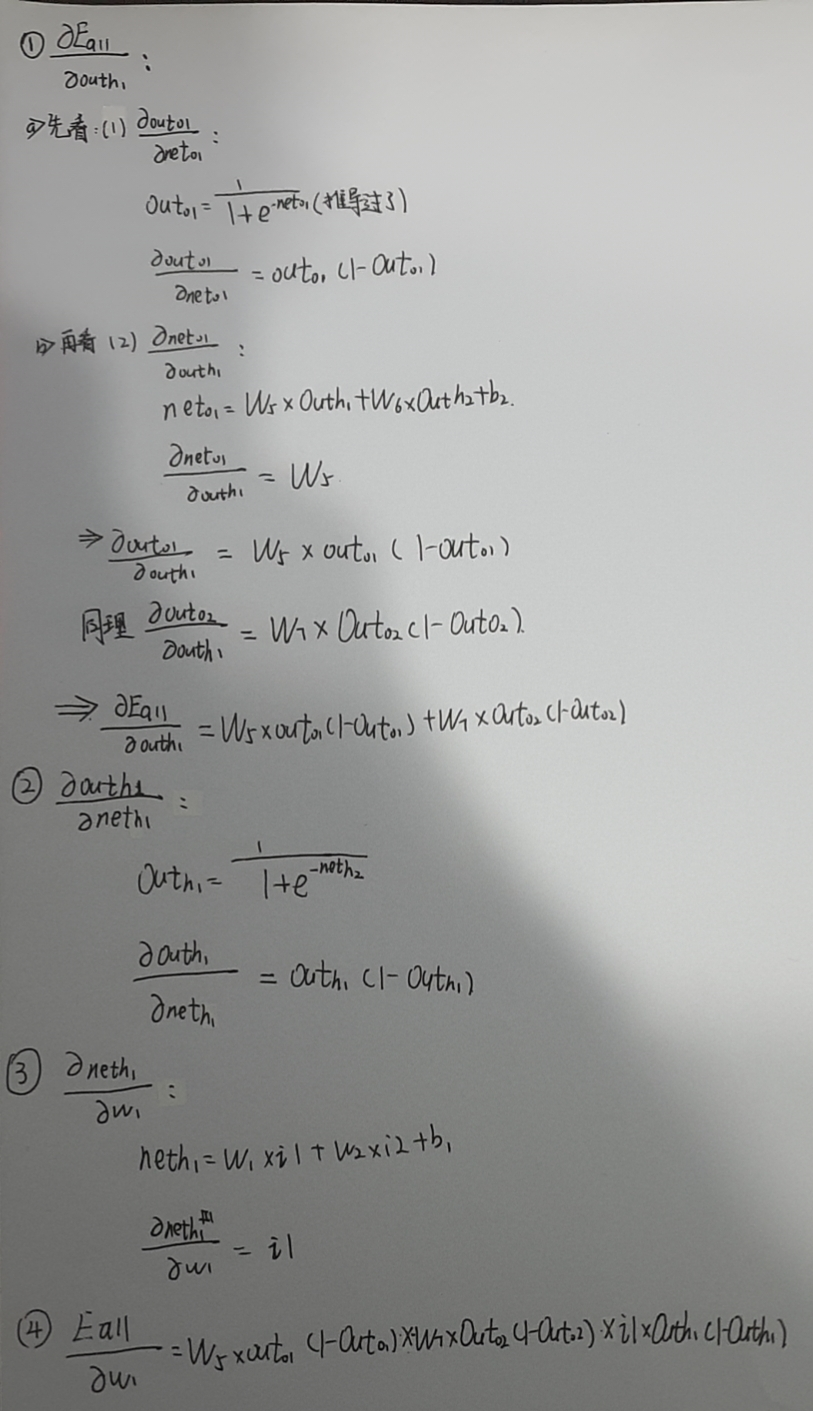 ① ∂Eall/∂outh₁ :
a>先看:(1) ∂outo1/∂neto1 :
outo1 = 1/(1+e^-neto1) (推导过了)
∂outo1/∂neto1 = outo1 (1-outo1)
b>再看 (2) ∂neto1/∂outh₁ :
neto1 = W5 × outh₁ + W6 × outh2 + b2.
∂neto1/∂outh₁ = W5
⇒ ∂outo1/∂outh₁ = W5 × outo1 (1-outo1)
同理 ∂outo2/∂outh₁ = W7 × outo2 (1-outo2).
⇒ ∂Eall/∂outh₁ = W5 × outo1 (1-outo1) + W7 × outo2 (1-outo2)
② ∂outh1/∂neth₁ :
outh₁ = 1/(1+e^-neth2)
∂outh₁/∂neth₁ = outh₁ (1-outh₁)
③ ∂neth₁/∂w₁ :
neth₁ = W₁ × i1 + W2 × i2 + b₁
∂neth₁/∂w₁ = i1
④ Eall/∂w₁ = W5 × outo1 (1-outo1) × W7 × outo2 (1-outo2) × i1 × outh₁ (1-outh₁)